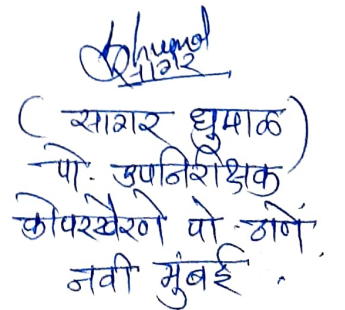 Dhumal
सागर
( सागर धुमाळ )
पो. उपनिरीक्षक
कोपरखैरणे पो. ठाणे,
नवी मुंबई.